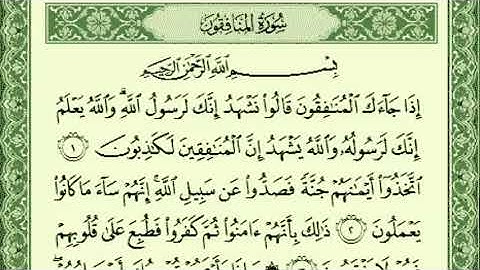 سُورَةُ المُنَافِقُونَ
بِسْمِ اللَّهِ الرَّحْمَٰنِ الرَّحِيمِ
إِذَا جَآءَكَ ٱلْمُنَٰفِقُونَ قَالُوا۟ نَشْهَدُ إِنَّكَ لَرَسُولُ ٱللَّهِ ۗ وَٱللَّهُ يَعْلَمُ
إِنَّكَ لَرَسُولُهُۥ وَٱللَّهُ يَشْهَدُ إِنَّ ٱلْمُنَٰفِقِينَ لَكَٰذِبُونَ ١
ٱتَّخَذُوٓا۟ أَيْمَٰنَهُمْ جُنَّةً فَصَدُّوا۟ عَن سَبِيلِ ٱللَّهِ ۚ إِنَّهُمْ سَآءَ مَا كَانُوا۟
يَعْمَلُونَ ٢ ذَٰلِكَ بِأَنَّهُمْ ءَامَنُوا۟ ثُمَّ كَفَرُوا۟ فَطُبِعَ عَلَىٰ قُلُوبِهِمْ